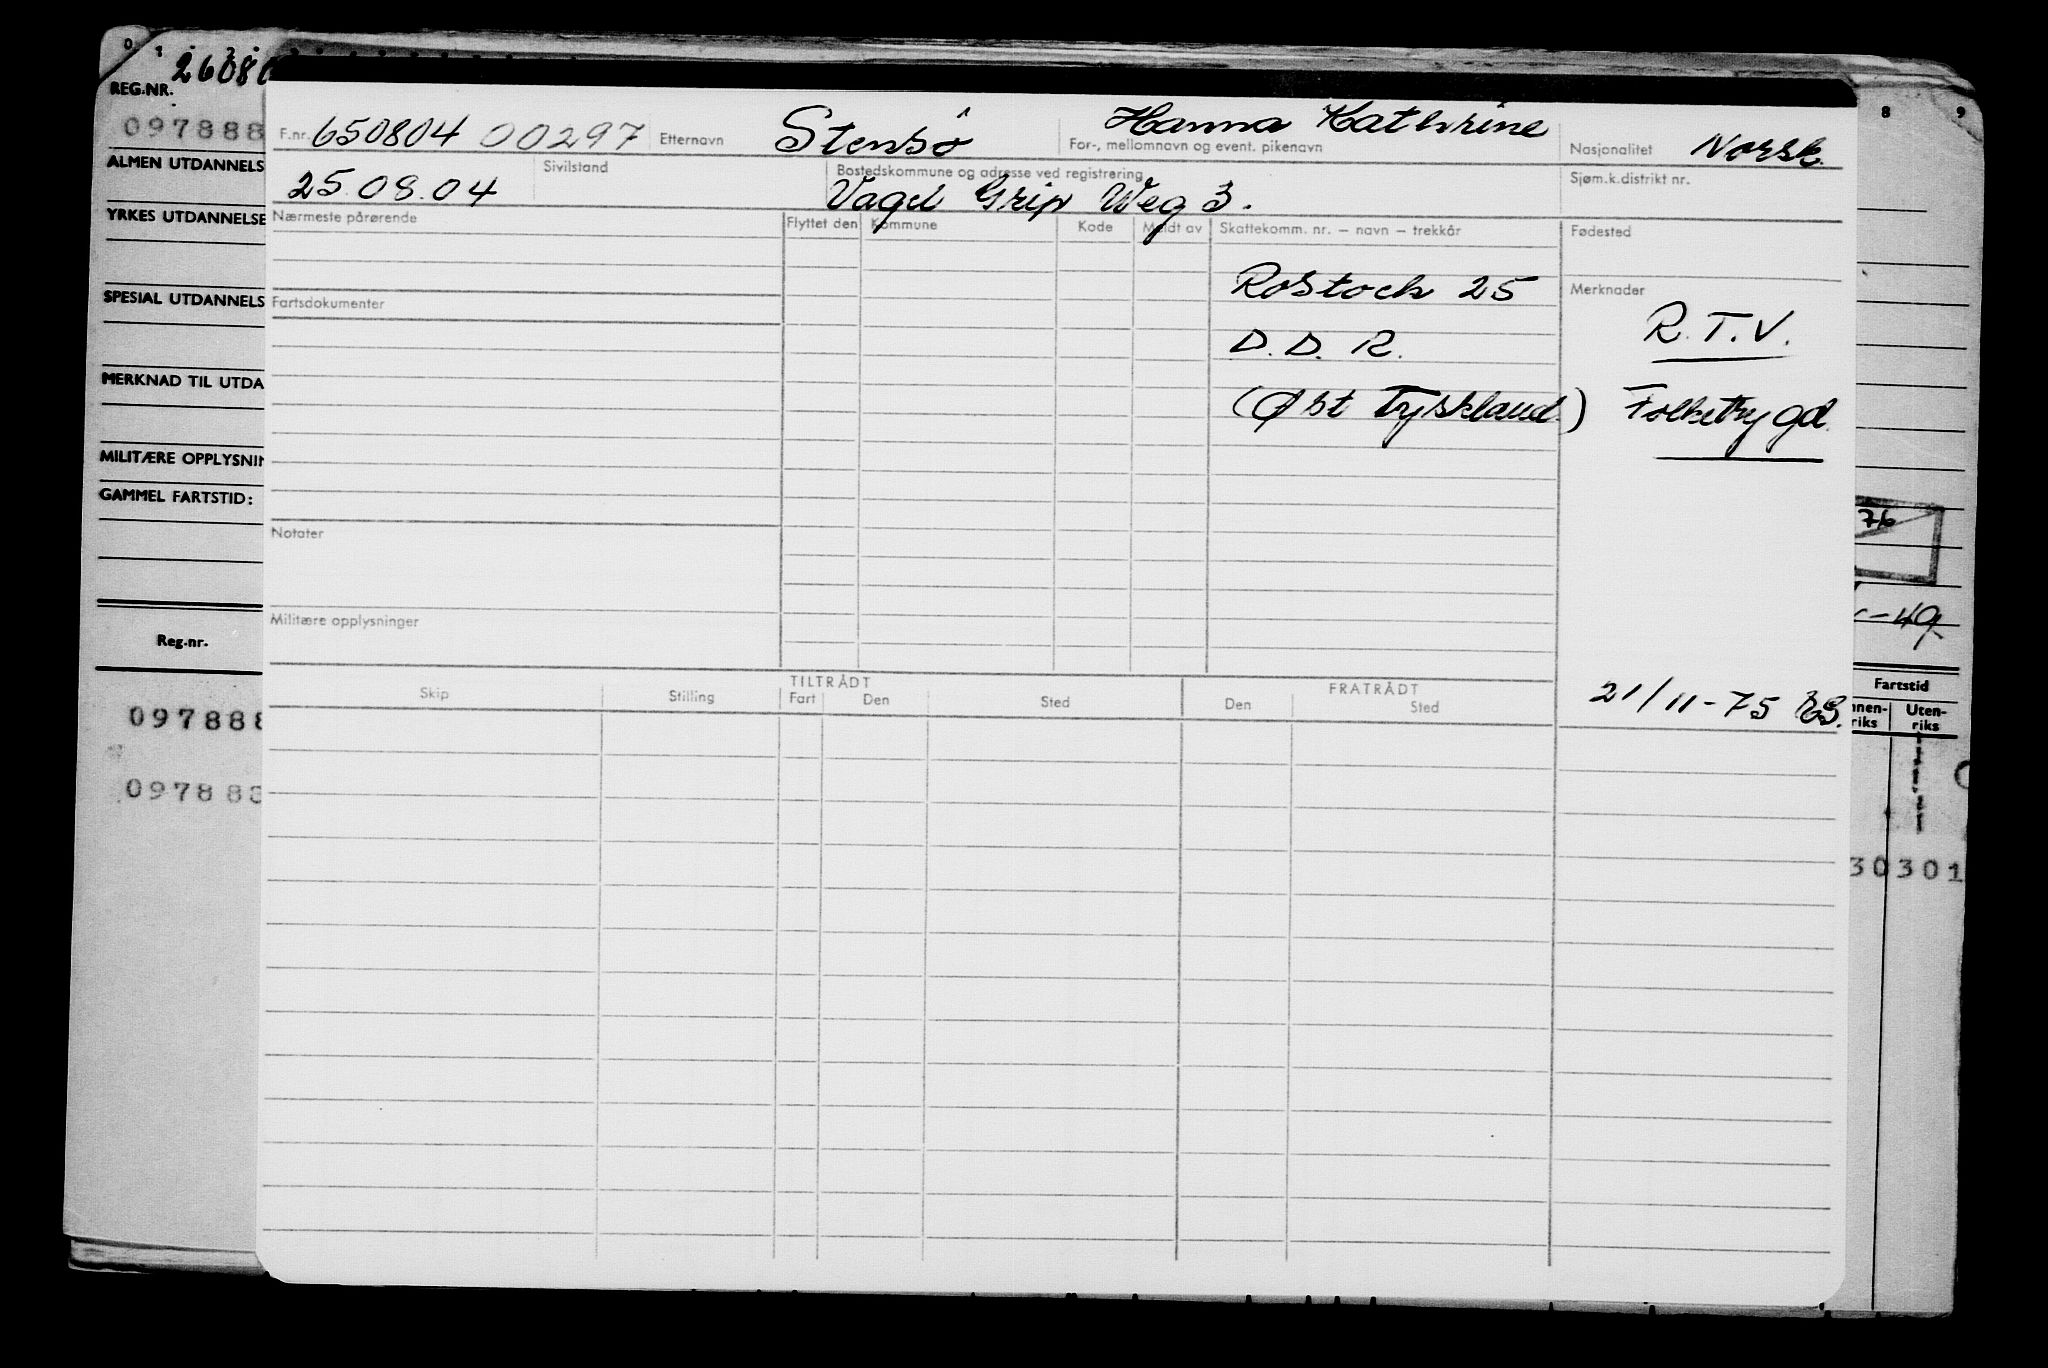 0 1 2
8 9
REG.NR.
097888
ALMEN UTDANNELS
YRKES UTDANNELSE
SPESIAL UTDANNELS
MERKNAD TIL UTDA
MILITÆRE OPPLYSNIN
GAMMEL FARTSTID:
Reg.nr.
097888
097883
F.nr. 650804 00297 Etternavn Stensö Hanna Kathrine
For-, mellomnavn og event. pikenavn
Nasjonalitet Norsk.
25.08.04 Sivilstand
Bostedskommune og adresse ved registrering
Vagel Grip Weg 3.
Sjøm.k.distrikt nr.
Nærmeste pårørende
Flyttet den Kommune Kode Meldt av Skattekomm. nr. – navn – trekkår
Fødested
Rostock 25
D.D.R.
(Øst Tyskland.)
Fartsdokumenter
Merknader
R.T.V.
Folketrygd.
Notater
Militære opplysninger
21/11-75
TILTRÅDT FRATRÅDT
Skip Stilling Fart Den Sted Den Sted
76
-49
Fartstid
nnen-
riks
Uten-
riks
30301